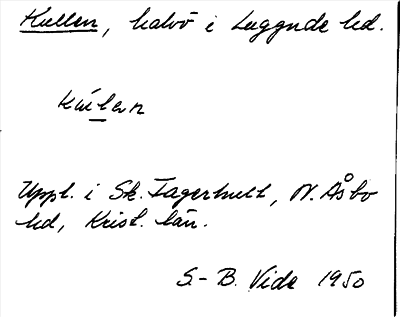 Kullen, halvö i Luggude hd.
Kúlen
Uppt. i Sk. Fagerhult, N. Åsbo
hd, Krist. län.
S.-B. Vide 1950